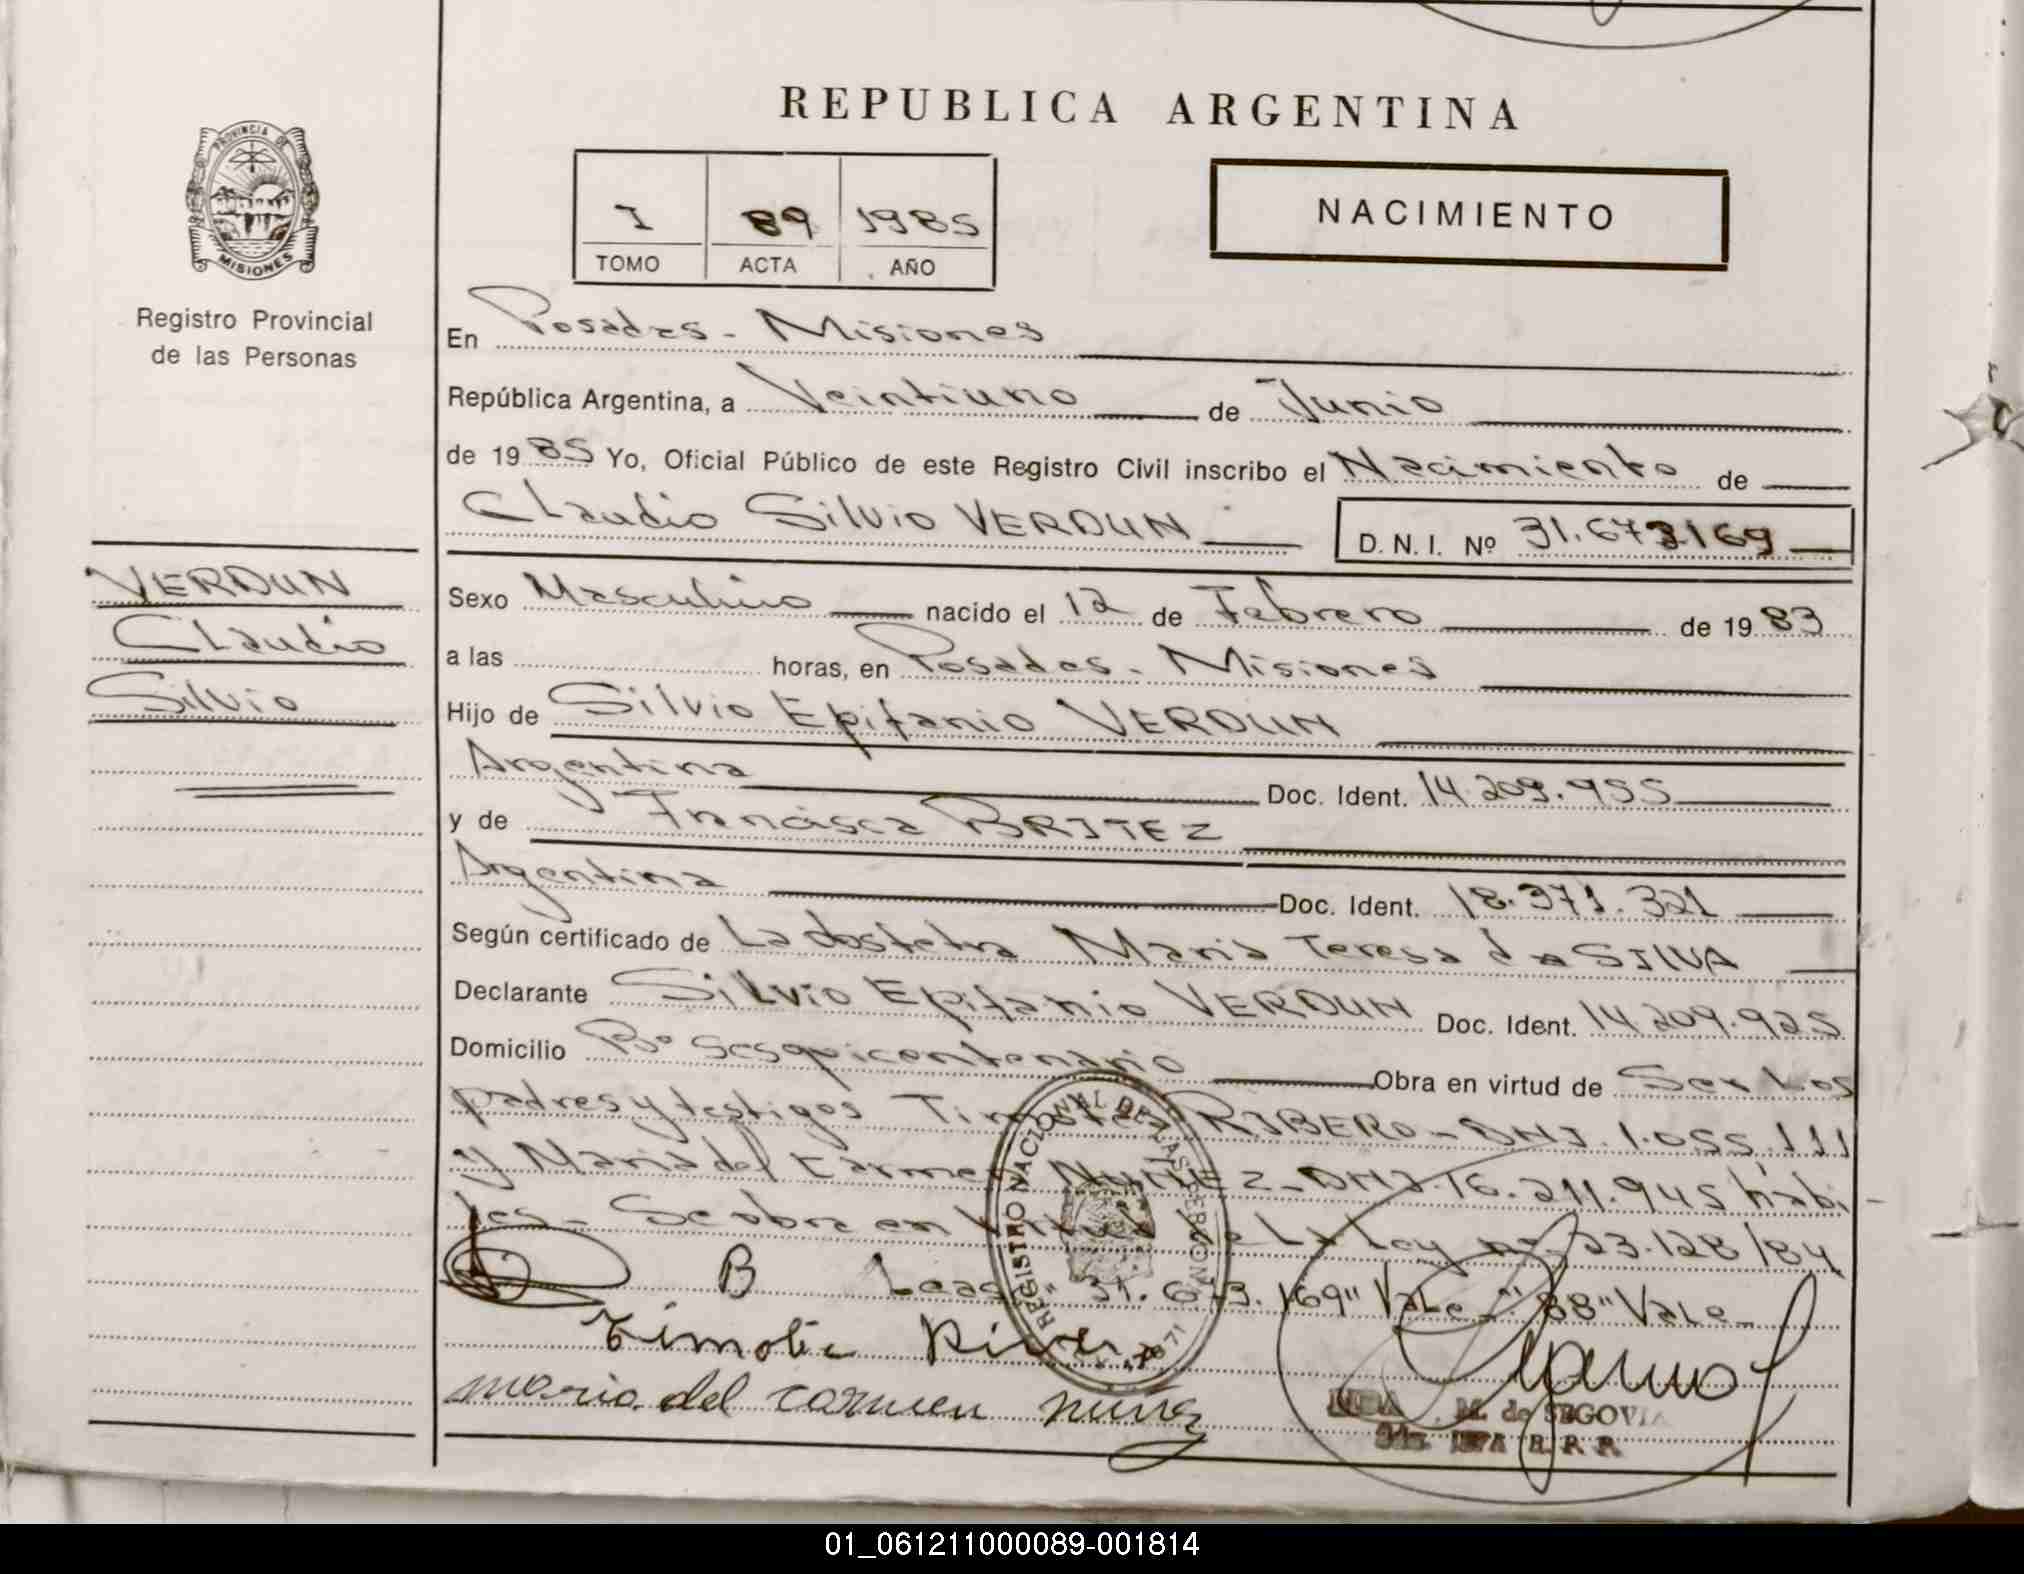 REPUBLICA ARGENTINA
PROVINCIA DE
MISIONES
Registro Provincial
de las Personas
I 89 1985
TOMO ACTA AÑO
NACIMIENTO
En Posadas - Misiones
República Argentina, a Veintiuno de Junio
de 1985 Yo, Oficial Público de este Registro Civil inscribo el Nacimiento de
Claudio Silvio VERDUN D.N.I. Nº 31.673169
VERDUN
Claudio
Silvio
Sexo Masculino nacido el 12 de Febrero de 1983
a las horas, en Posadas - Misiones
Hijo de Silvio Epifanio VERDUN
Argentina Doc. Ident. 14.209.955
y de Francisca BRITEZ
Argentina Doc. Ident. 18.371.321
Según certificado de La dostetra Maria Teresa da SILVA
Declarante Silvio Epifanio VERDUN Doc. Ident. 14.209.925
Domicilio Bº Sesquicentenario Obra en virtud de Ser Los
padres y testigos RIBERO - DNI. 1.055.111
y Maria del Carmen NUÑEZ - DNI 16.211.945 hábi-
les - Se obra en Virtud de La Ley nº 23.128/84
B Leas 31.673.169" Vale - "88" Vale -
REGISTRO NACIONAL DE LAS PERSONAS
Timotea
maria del carmen nuñez
M. de SEGOVIA
R. P. P.
01_061211000089-001814